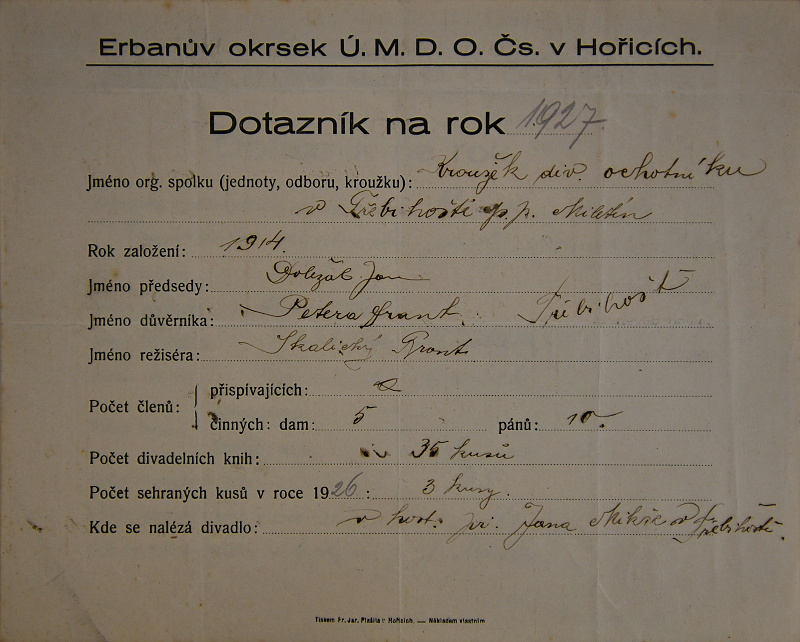 Erbanův okrsek Ú. M. D. O. Čs. v Hořicích.
Dotazník na rok 1927.
Jméno org. spolku (jednoty, odboru, kroužku): Kroužek div. ochotníku
v Třebihošti p. p. Miletín
Rok založení: 1914.
Jméno předsedy: Doležal Jan
Jméno důvěrníka: Petera Frant. Třebihošť
Jméno režiséra: Skalický Frant.
Počet členů: přispívajících:
činných: dam: 5 pánů: 10.
Počet divadelních knih: 35 kusů
Počet sehraných kusů v roce 1926: 3 kusy.
Kde se nalézá divadlo: v host. Jana v Třebihošti.
Tiskem Fr. Jar. Plašila v Hořicích. — Nákladem vlastním